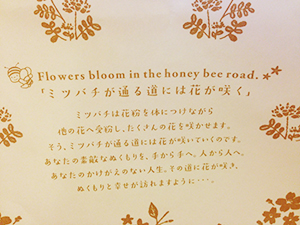 Flowers bloom in the honey bee road.
「ミツバチが通る道には花が咲く」
ミツバチは花粉を体につけながら
他の花へ受粉し、たくさんの花を咲かせます。
そう、ミツバチが通る道には花が咲いていくのです。
あなたの素敵なぬくもりを、手から手へ、人から人へ。
あなたのかけがえのない人生。その道に花が咲き、
ぬくもりと幸せが訪れますように・・・。